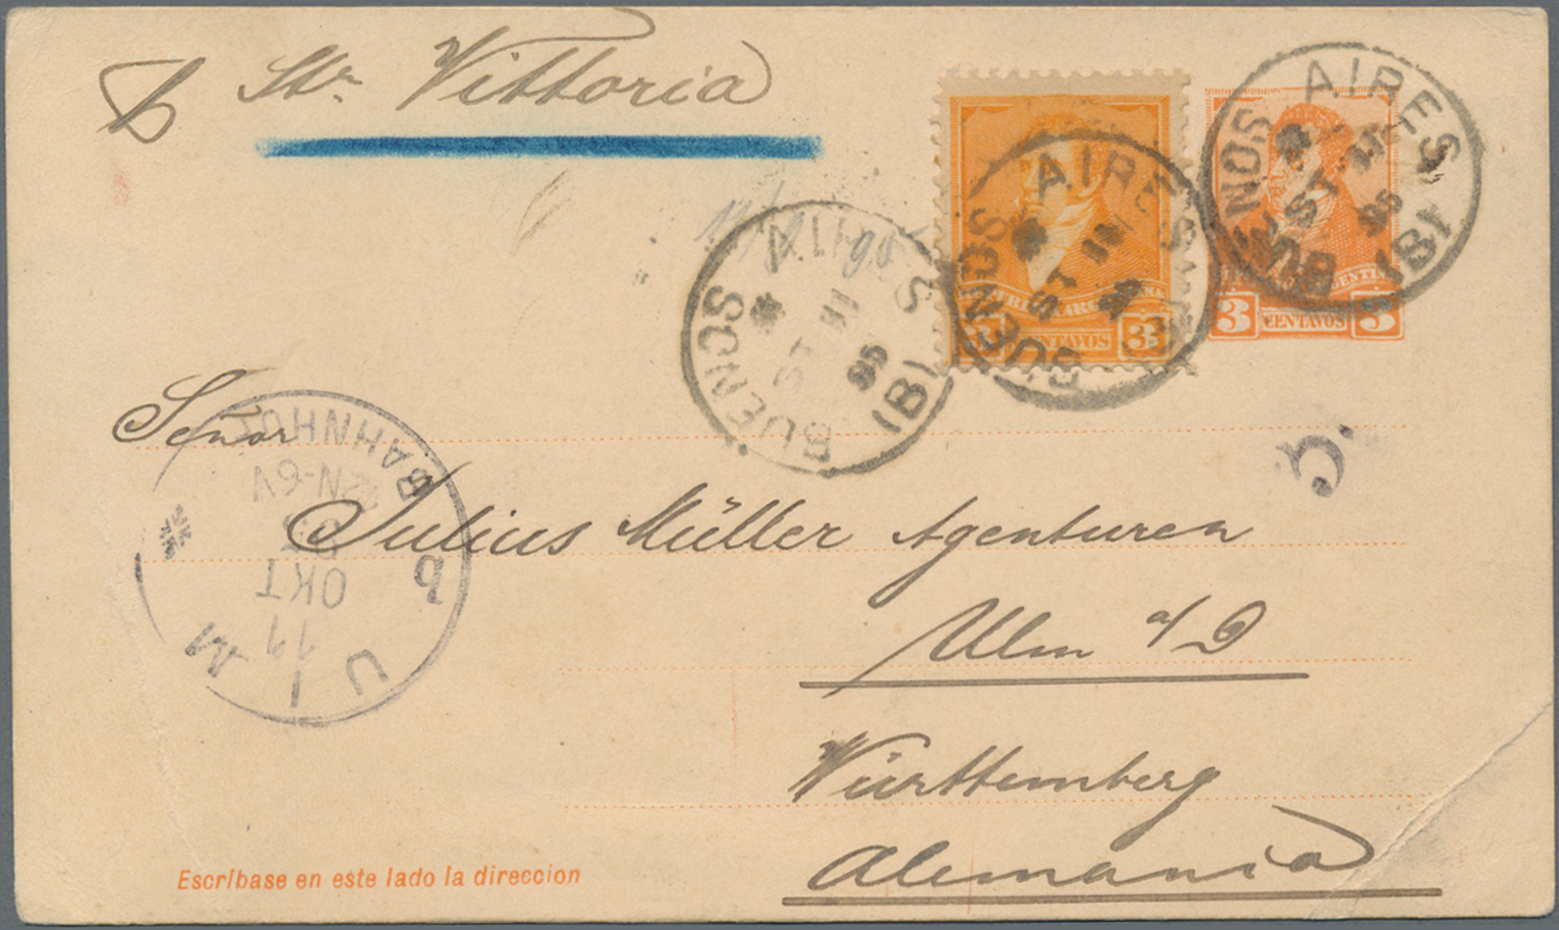 p Str. Vittoria
BUENOS AIRES
(B)
ST 11
95
BUENOS AIRES
ST 11
95
3 CENTAVOS 3
BUENOS AIRES
(B)
ST 11
95
3 CENTAVOS 3
3.
Señor
Julius Müller Agenturen
Ulm a/D
Württemberg
Alemania
ULM
11
OKT
12N-6N
b
BAHNHOF
Escríbase en este lado la direccion